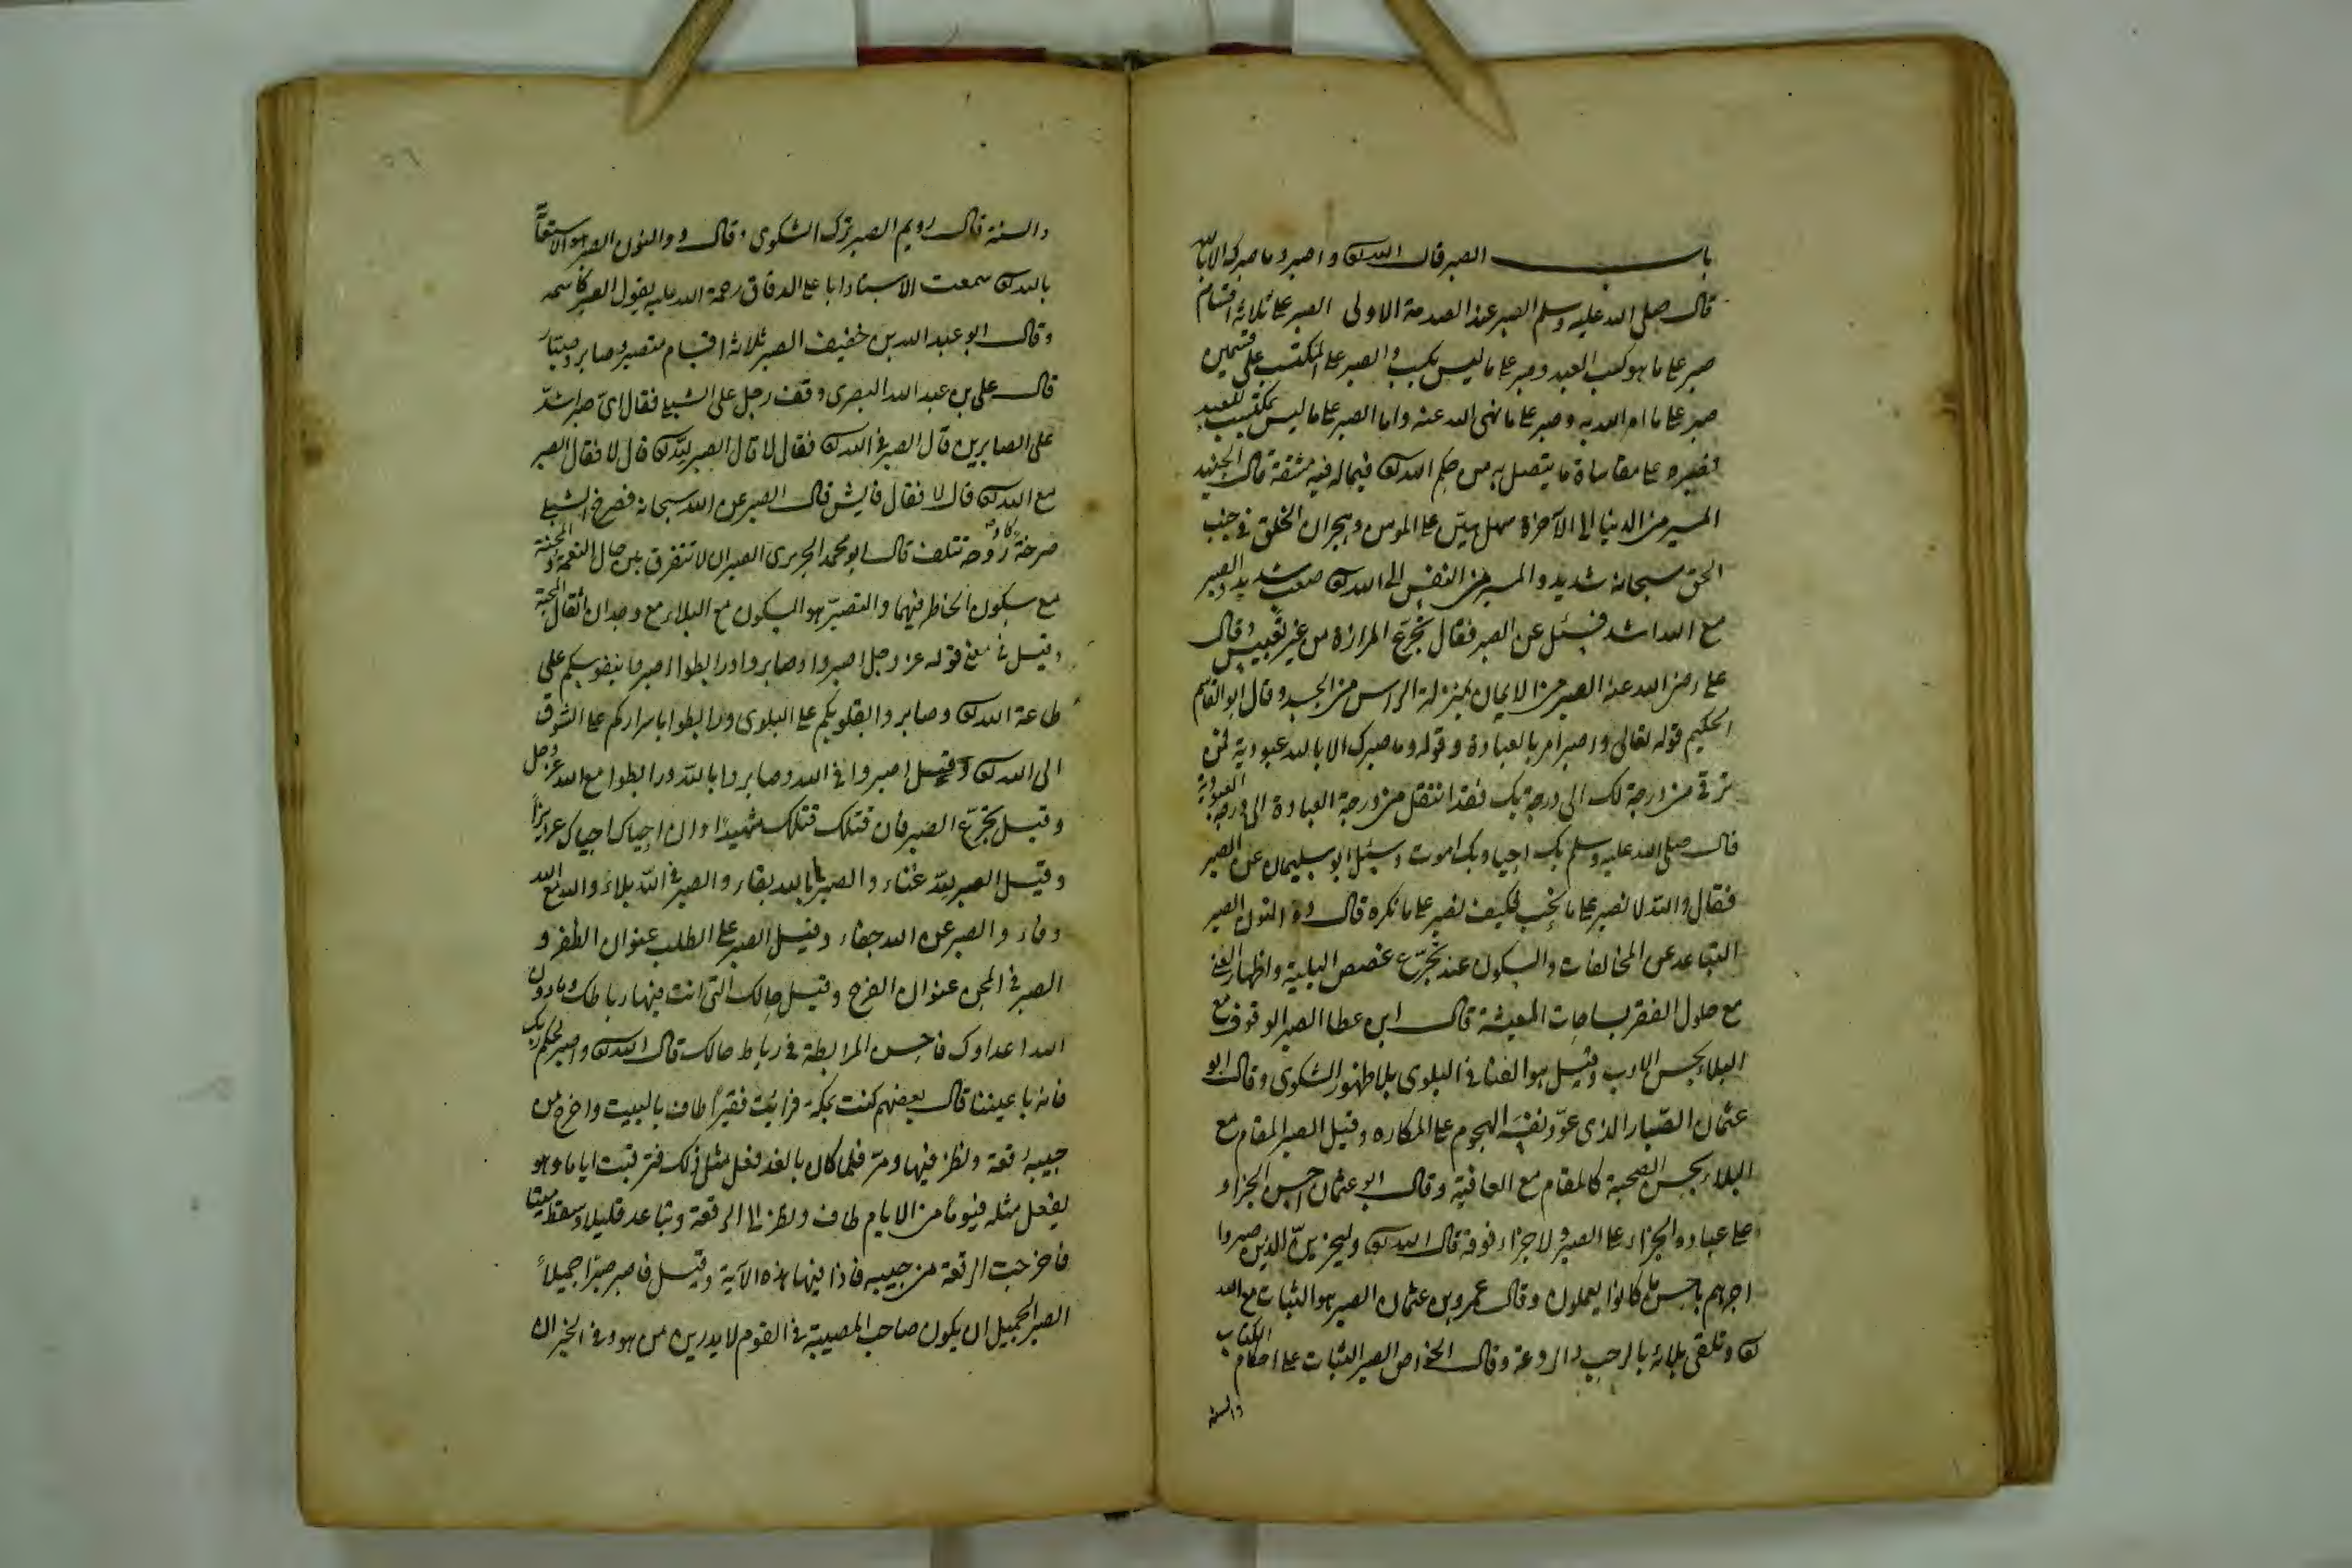 باب الصبر قال الله تع واصبر وما صبرك الا بالله
قال صلى الله عليه وسلم الصبر عند الصدمة الاولى الصبر على ثلاثة اقسام
صبر على ما هو كسب العبد وصبر على ما ليس بكسب والصبر على المكتسب على قسمين
صبر على ما امر الله به وصبر على ما نهى الله عنه واما الصبر على ما ليس بمكتسب للعبد
فصبره على مقاساة ما يتصل به من حكم الله تع فيما له فيه مشقة قال الجنيد
المسير من الدنيا الى الآخرة سهل هيّن على المومن وهجران الخلق في جنب
الحق سبحانه شديد والمسير من النفس الى الله تع صعب شديد والصبر
مع الله اشد فسئل عن الصبر فقال تجرّع المرارة من غير تعبيس وقال
على رضى الله عنه الصبر من الايمان بمنزلة الراس من الجسد وقال ابو القاسم
الحكيم قوله تعالى واصبر امر بالعبادة وقوله وما صبرك الا بالله عبودية فمن
ترقى من درجة لك الى درجة بك فقد انتقل من درجة العبادة الى درجة العبودية
قال صلى الله عليه وسلم بك احيا وبك اموت وسئل ابو سليمان عن الصبر
فقال والله لا نصبر على ما نحب فكيف نصبر على ما نكره قال ذو النون الصبر
التباعد عن المخالفات والسكون عند تجرّع غصص البلية واظهار الغنى
مع حلول الفقر بساحات المعيشة قال ابن عطا الصبر الوقوف مع
البلاء بحسن الادب وقيل هو الفنا في البلوى بلا ظهور الشكوى وقال ابو
عثمان الصبّار الذى عوّد نفسه الهجوم على المكاره وقيل الصبر المقام مع
البلاء بحسن الصحبة كالمقام مع العافية وقال ابو عثمان احسن الجزاء
على عباده الجزاء على الصبر ولا جزاء فوقه قال الله تع وليجزينّ الذين صبروا
اجرهم باحسن ما كانوا يعملون وقال عمرو بن عثمان الصبر هو الثبات مع الله
تع وتلقى بلائه بالرحب والدعة وقال الخواص الصبر الثبات على احكام الكتاب
والسنة
٥٦
والسنة قال رويم الصبر ترك الشكوى وقال ذو النون الصبر هو الاستعانة
بالله تع سمعت الاستاد ابا على الدقاق رحمة الله عليه يقول الصبر كاسمه
وقال ابو عبد الله بن خفيف الصبر ثلاثة اقسام متصبر وصابر وصبّار
قال على بن عبد الله البصرى وقف رجل على الشبلى فقال اىّ صبر اشدّ
على الصابرين قال الصبر في الله تع فقال لا قال الصبر لله تع قال لا فقال الصبر
مع الله تع قال لا فقال فايش قال الصبر عن الله سبحانه فصرخ الشبلى
صرخة كاد روحه تتلف قال ابو محمد الجريرى الصبر ان لا تتفرق بين حال النعمة والمحنة
مع سكون الخاطر فيهما والتصبّر هو السكون مع البلاء مع وجدان اثقال المحنة
وقيل في معنى قوله عز وجل اصبروا وصابروا ورابطوا اصبروا بنفوسكم على
طاعة الله تع وصابروا بقلوبكم على البلوى ورابطوا باسراركم على الشوق
الى الله تع وقيل اصبروا في الله وصابروا بالله ورابطوا مع الله عز وجل
وقيل تجرّع الصبر فان قتلك قتلك شهيدًا وان احياك احياك عزيزًا
وقيل الصبر لله غناء والصبر بالله بقاء والصبر في الله بلاء والصبر مع الله
وفاء والصبر عن الله جفاء وقيل الصبر على الطلب عنوان الظفر و
الصبر في المحن عنوان الفرج وقيل حالك التى انت فيها رباطك وما دون
الله اعداوك فاحسن المرابطة في رباط حالك قال الله تع واصبر لحكم ربك
فانك باعيننا قال بعضهم كنت بمكة فرايت فقيرًا طاف بالبيت واخرج من
جيبه رقعة ونظر فيها ومرّ فلما كان بالغد فعل مثل ذلك فترقبت اياما وهو
يفعل مثله فيوما من الايام طاف ونظر الى الرقعة وتباعد قليلا وسقط ميتا
فاخرجت الرقعة من جيبه فاذا فيها هذه الآية وقيل فاصبر صبرًا جميلاً
الصبر الجميل ان يكون صاحب المصيبة في القوم لا يدرين من هو وفى الخبر ان